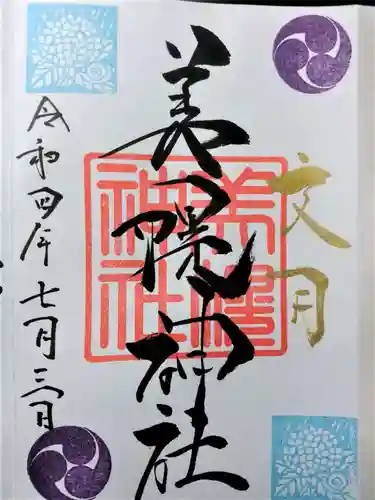 文月
美幌神社
美幌
神社
令和四年七月三日